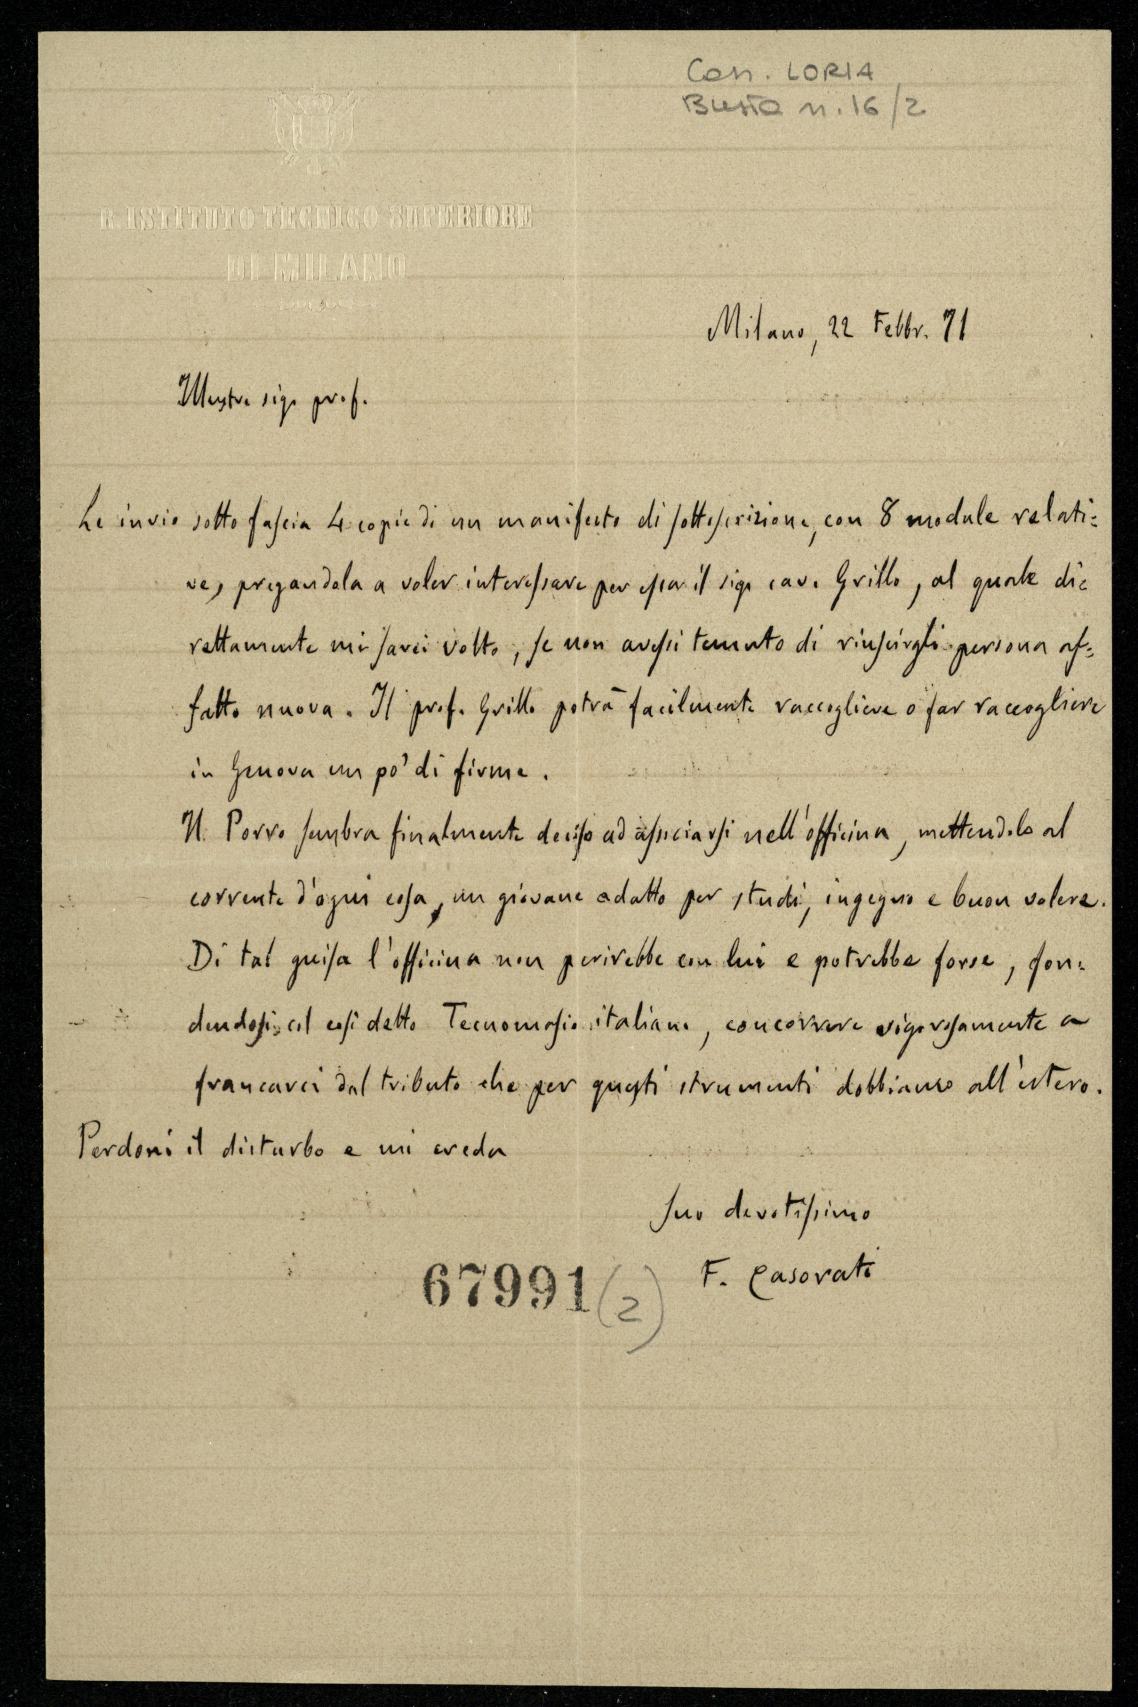 Cass. LORIA
Busta n. 16/2
R. ISTITUTO TECNICO SUPERIORE
DI MILANO
Milano, 22 Febbr. 71
Illustre sigr prof.
Le invio sotto fascia 4 copie di un manifesto di sottoscrizione, con 8 module relati=
ve, pregandola a voler interessare per essa il sigr cav. Grillo, al quale di=
rettamente mi sarei volto, se non avessi temuto di riuscirgli persona af=
fatto nuova. Il prof. Grillo potrà facilmente raccogliere o far raccogliere
in Genova un po' di firme.
Il Porro sembra finalmente deciso ad associarsi nell'officina, mettendolo al
corrente d'ogni cosa, un giovane adatto per studi, ingegno e buon volere.
Di tal guisa l'officina non perirebbe con lui e potrebbe forse, fon=
dendosi col così detto Tecnomasio italiano, concorrere vigorosamente a
francarci dal tributo che per questi strumenti dobbiamo all'estero.
Perdoni il disturbo e mi creda
Suo devotissimo
F. Casorati
67991 (2)